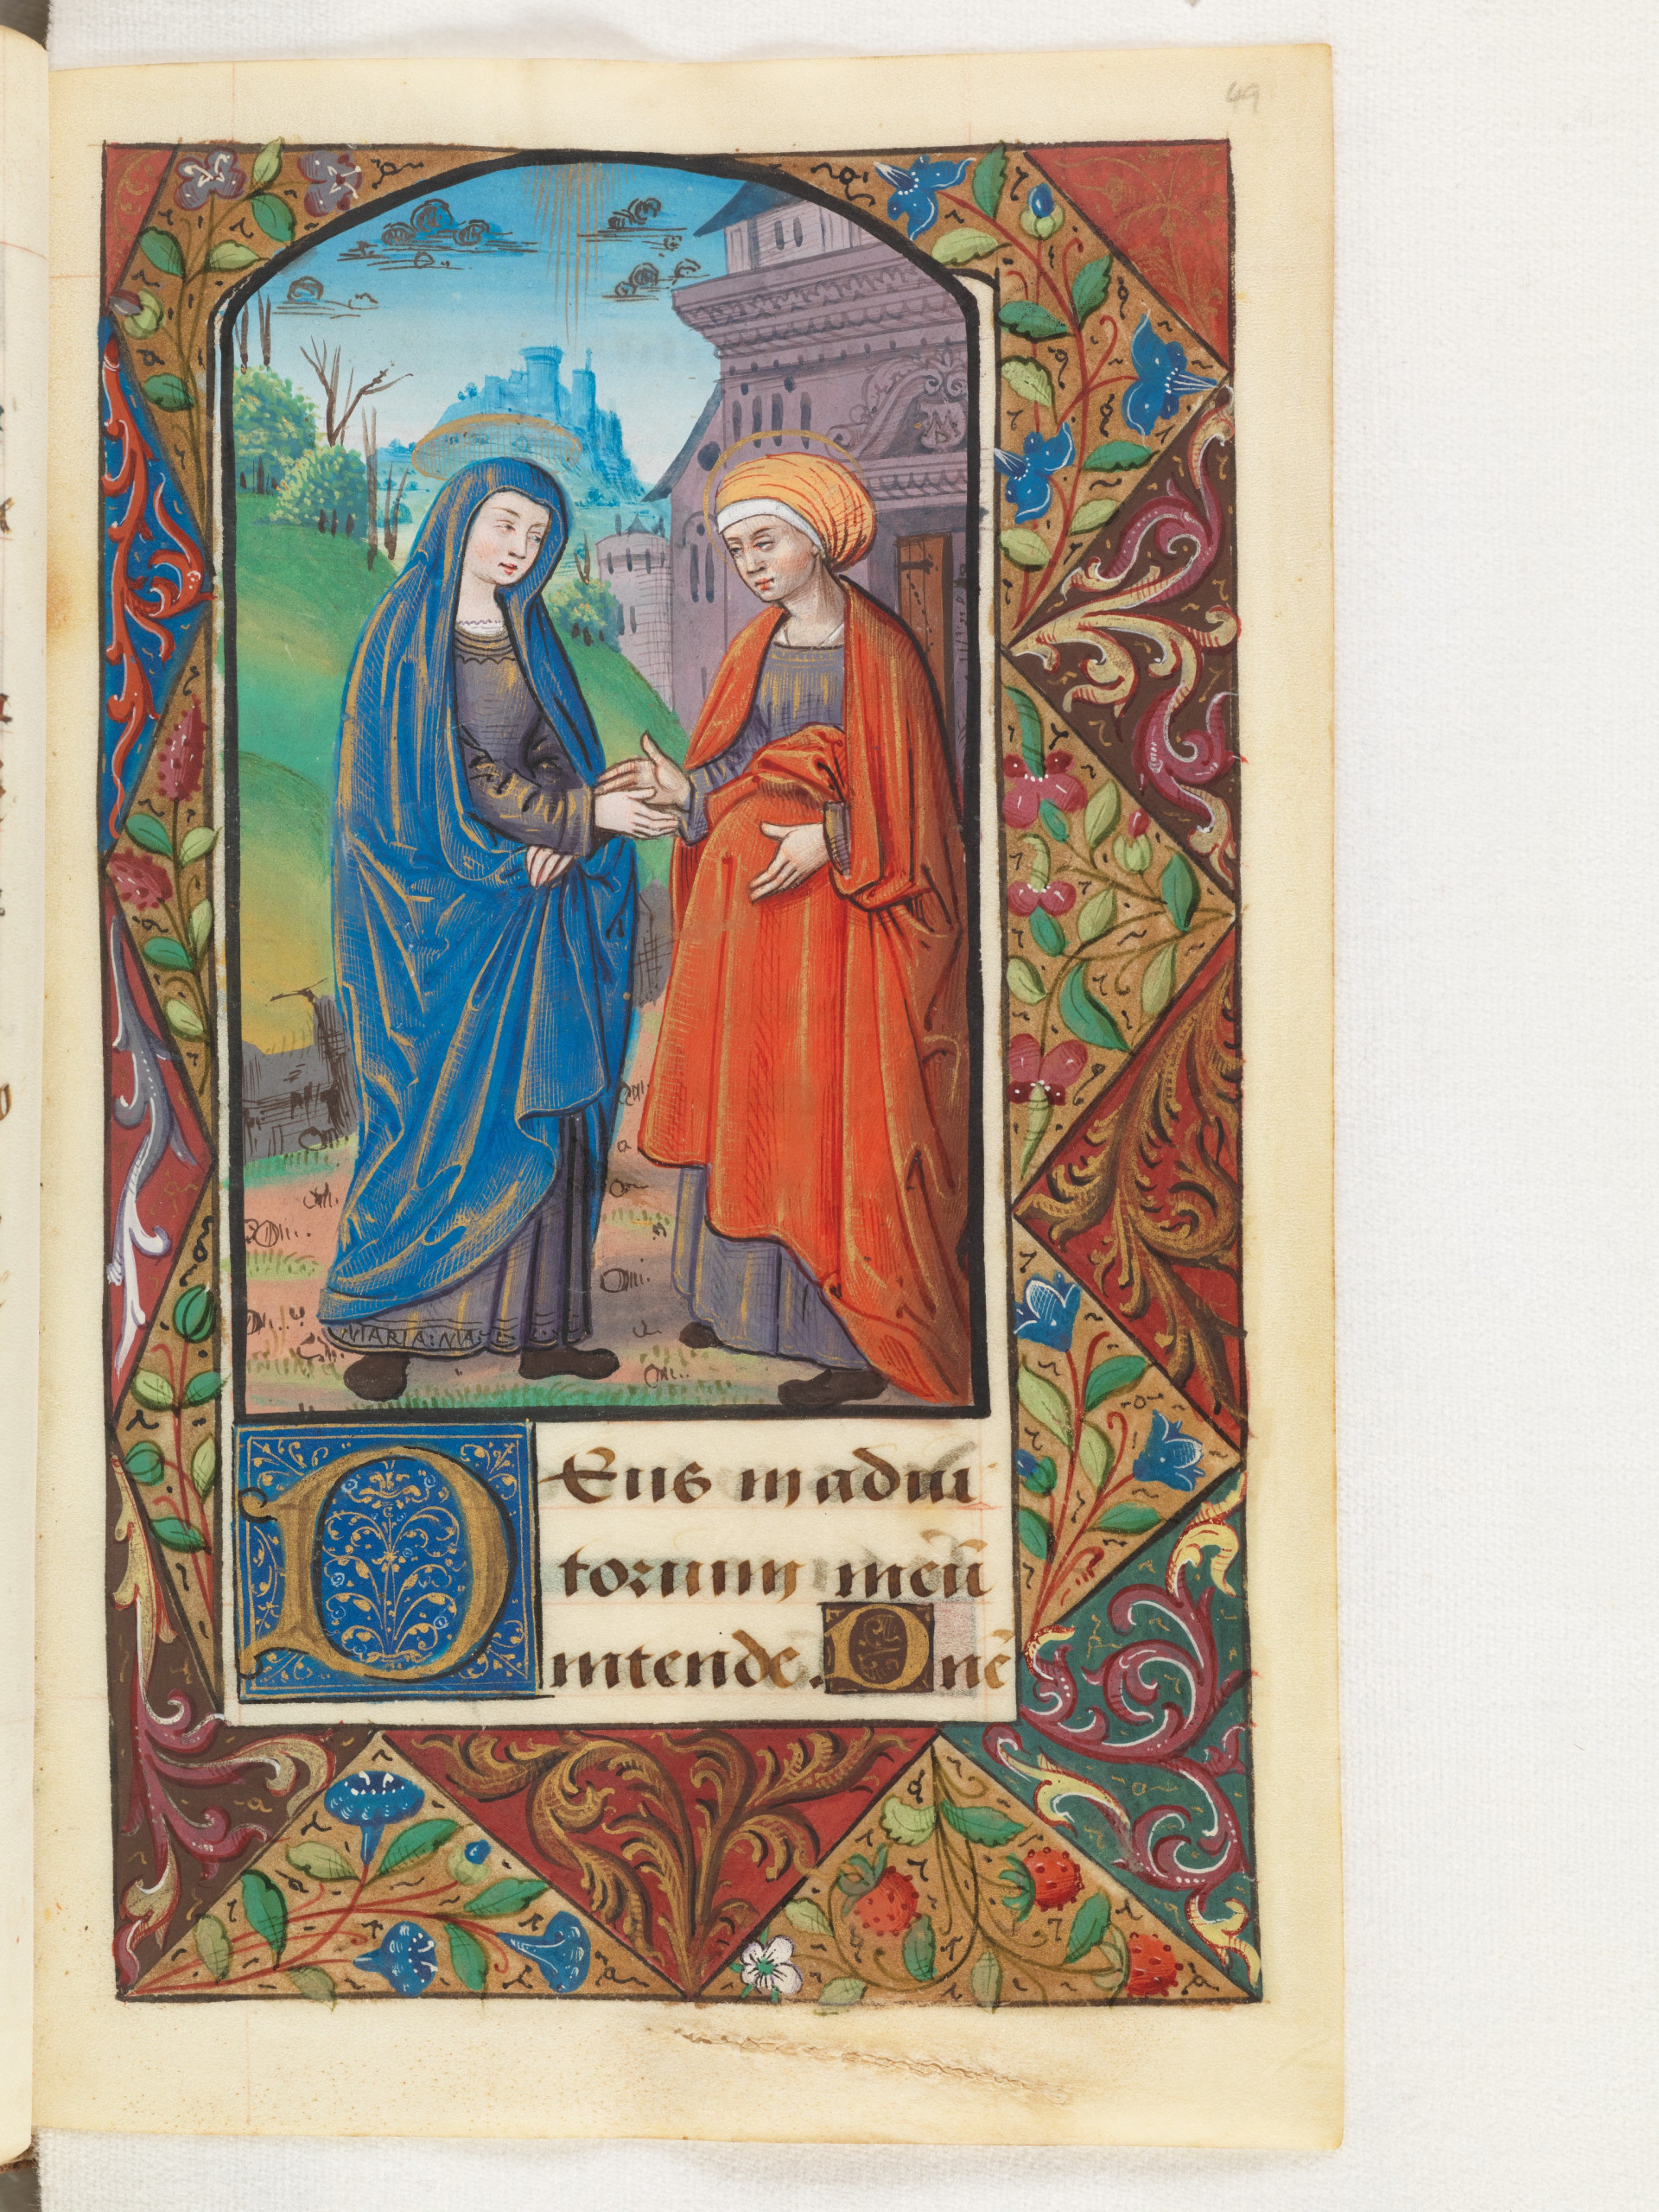 49
MARIA:MA
DEus in adiu
torium meū
intende. Dnē